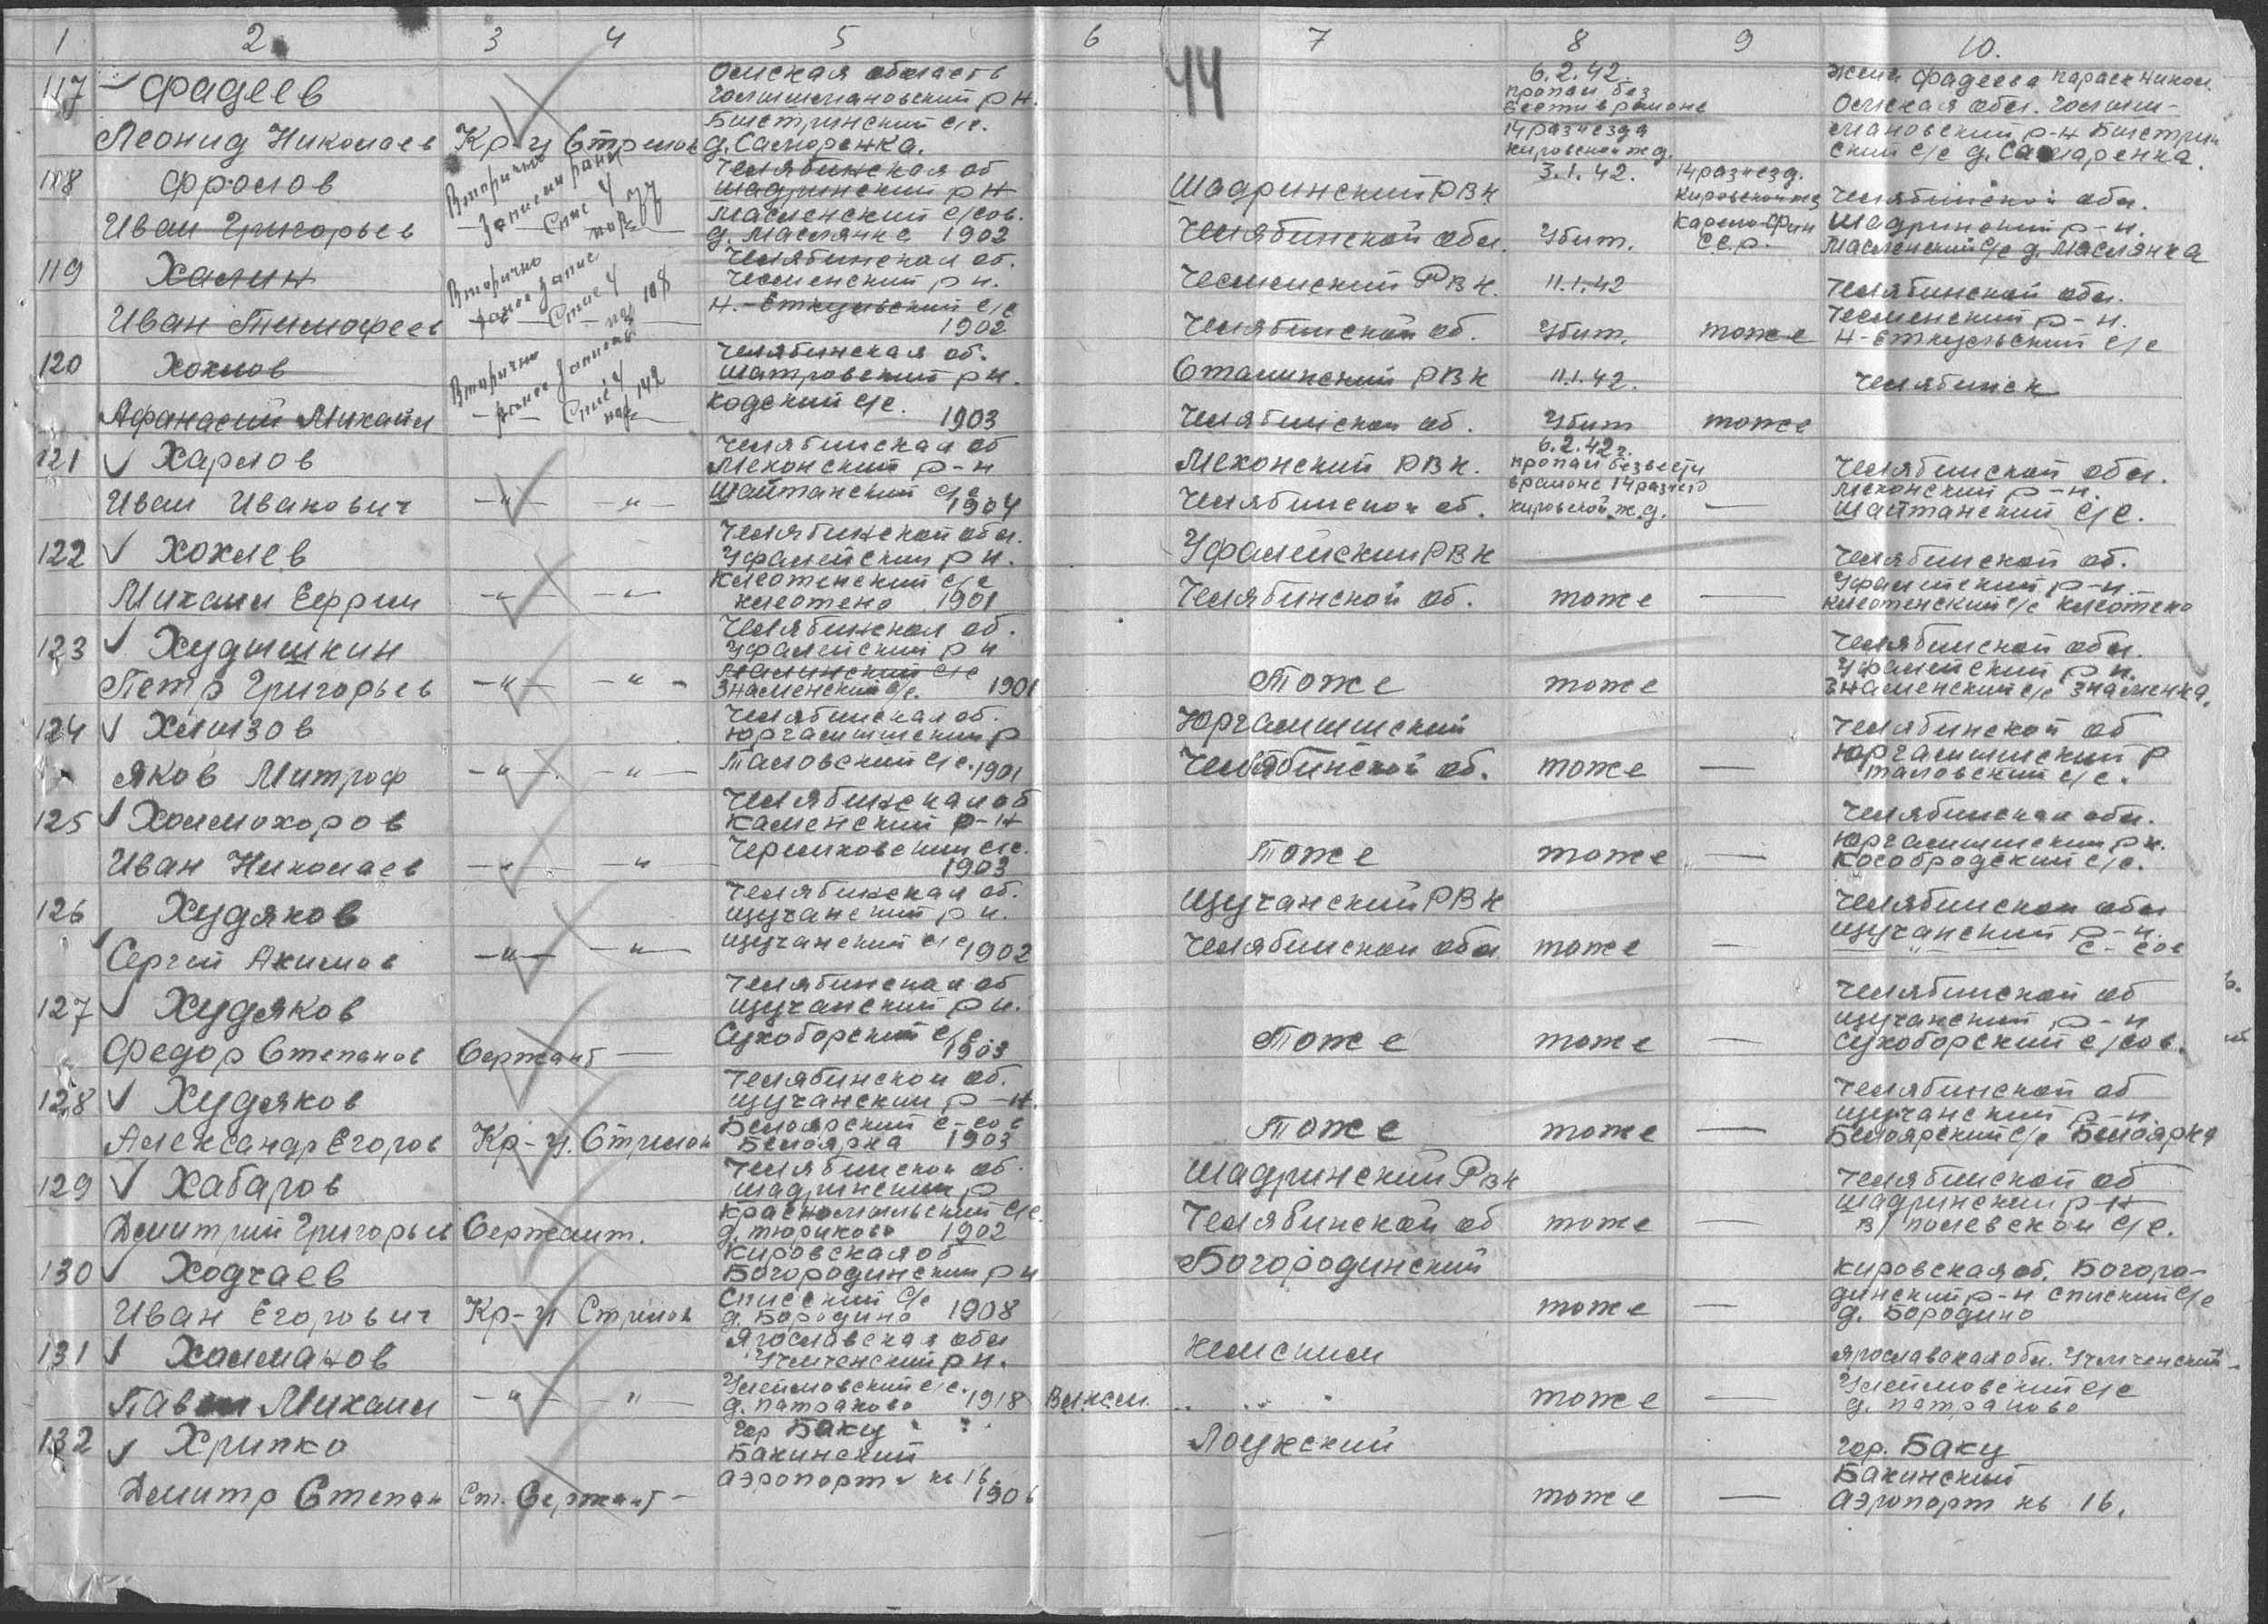 1 2 3 4 5 6 7 8 9 10.
44
117 Фадеев
Леонид Николаев Кр-ц Стрелок
Омская область
Голышмановский рн.
Быстринский с/с.
д. Саморенка.
6.2.42.
пропал без
вести в районе
14 разъезда
Кировской ж д.
жена Фадеева Параск Никол.
Омская обл. Голыш-
мановский р-н Быстрин
ский с/с д. Самаренка.
118 Фролов
Иван Григорьев
Вторично
Записан ранее
Спис 4 77
Челябинская об
Шадринский рн
Масленский с/сов.
д. Маслянка 1902
Шадринский РВК
Челябинской обл.
3.1.42.
Убит.
14 разъезд.
Кировской жд
Карело-Фин
ССР.
Челябинской обл.
Шадринский р-н.
Масленский с/с д. Маслянка
119 Халин
Иван Тимофеев
Вторично
ранее запис
Спис 4 108
Челябинская об.
Чесменский рн.
Н.-Еткульский с/с
1902
Чесменский РВК.
Челябинской об.
11.1.42
Убит.
тоже
Челябинской обл.
Чесменский р-н.
Н-Еткульский с/с
120 Хохлов
Афанасий Михайл
Вторично
ранее Записан
Спис 4 142
Челябинская об.
Шатровский рн.
Кодский с/с.
1903
Сталинский РВК
Челябинской об.
11.1.42.
Убит
тоже
Челябинск
121 Харлов
Иван Иванович -"- -"-
Челябинская об
Мехонский р-н
Шайтанский с/с
1904
Мехонский РВК.
Челябинской об.
6.2.42г.
пропал безвести
в районе 14 разъезд
кировской ж.д. —
Челябинской обл.
Мехонский р-н.
Шайтанский с/с.
122 Хохлев
Михаил Ефрим -"- -"-
Челябинской обл.
Уфалейский рн.
1901
Уфалейский РВК
Челябинской об.
тоже —
Челябинской об.
Уфалейский р-н.
123 Худышкин
Петр Григорьев -"- -"-
Челябинская об.
Уфалейский рн
Знаменский с/с. 1901
Тоже
тоже
Челябинской обл.
Уфалейский рн.
Знаменский с/с Знаменка.
124 Хлызов
Яков Митроф -"- -"-
Челябинская об.
Юргамышский р
Таловский с/с. 1901
Юргамышский
Челябинской об.
тоже —
Челябинской об
Юргамышский р
Таловский с/с.
125 Холмохоров
Иван Николаев -"- "
Челябинская об
Каменский р-н
1903
Тоже
тоже —
Челябинская обл.
Юргамышский рн.
Кособродский с/с.
126 Худяков
Сергей Акимов -"- -"-
Челябинская об.
Щучанский рн.
Щучанский с/с 1902
Щучанский РВК
Челябинской обл
тоже —
Челябинской обл
Щучанский р-н.
—"— с-сов
127 Худяков
Федор Степанов Сержант —
Челябинская об
Щучанский рн.
Сухоборский с/с
1903
Тоже
тоже —
Челябинской об
Щучанский р-н
Сухоборский с/сов.
128 Худяков
Александр Егоров Кр-ц. Стрелок
Челябинской об.
Щучанский р-н.
Белоярский с-сов
Белоярка 1903
Тоже
тоже —
Челябинской об
Щучанский р-н.
Белоярский с/с Белоярка
129 Хабаров
Дмитрий Григорьев Сержант.
Челябинской об.
Шадринский р
Красномыльский с/с.
д. Тюриково 1902
Шадринский РВК
Челябинской об
тоже —
Челябинской об
Шадринский р-н
В/полевской с/с.
130 Ходчаев
Иван Егорович Кр-ц Стрелок
Кировская об
Богородинский рн
с/с
д. Бородино 1908
Богородинский
тоже —
Кировская об. Богоро-
динский р-н с/с
д. Бородино
131 Холмаков
Павел Михаил -"- "
Ярославская обл
рн.
с/с. 1918
д. Патраково
Кемский
тоже —
Ярославская обл.
с/с
д. Патраково
132 Хрипко
Дмитр Степан Ст. Сержант —
гор Баку
Бакинский
аэропорт кв 16.
1906
Лоухский
тоже —
гор. Баку
Бакинский
аэропорт кв 16.